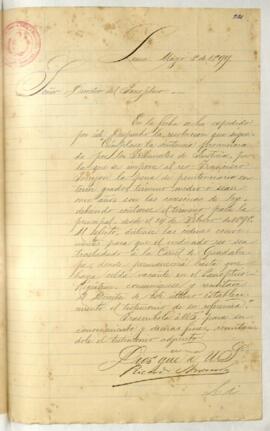 Lima, Mayo 2 de 1899
Señor Director del Panóptico
En la fecha se ha expedido
por este Despacho la resolución que sigue:
"Cúmplase la sentencia pronunciada
por los Tribunales de Justicia, por
la que se impone al reo Francisco
la pena de penitenciaría en
tercer grado, término medio o sean
nueve años con las accesorias de ley
debiendo contarse el término para la
principal, desde el de Febrero de 1898.
Al efecto, díctese las órdenes conve
niente para que el reo sea
trasladado a la Carcel de Guadalu
pe, donde permanecerá hasta que
haya celda vacante en el Panóptico
Regístrese, comuníquese y remítase
al Director de este último estableci
miento el testimonio de su referencia"
Trascríbolo a US. para su
conocimiento y demás fines, remitién
dole el testimonio adjunto.
Dios gue. a US.
Ricardo